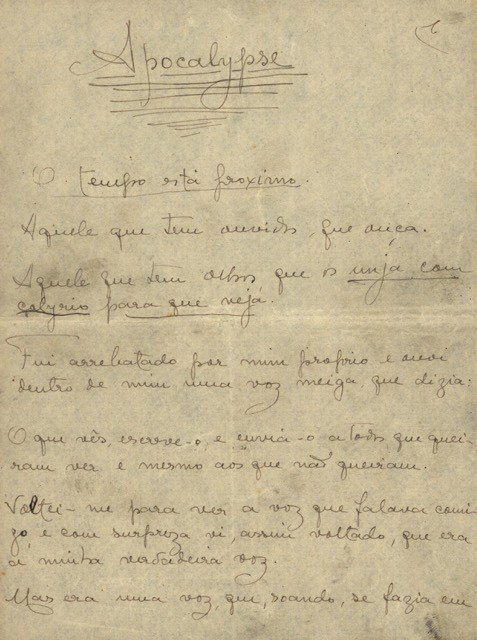 1
Apocalypse
O tempo está proximo.
Aquele que tem ouvidos, que ouça.
Aquele que tem olhos que os unja com
colyrio para que veja.
Fui arrebatado por mim proprio e ouvi
dentro de mim uma voz meiga, que dizia:
O que vês, escreve-o, e envia-o a todos que quei-
ram ver e mesmo aos que não queiram.
Voltei-me para ver a voz que falava comi-
go, e com surpreza vi, assim voltado, que era
a minha verdadeira voz.
Mas era uma voz, que, soando, se fazia em